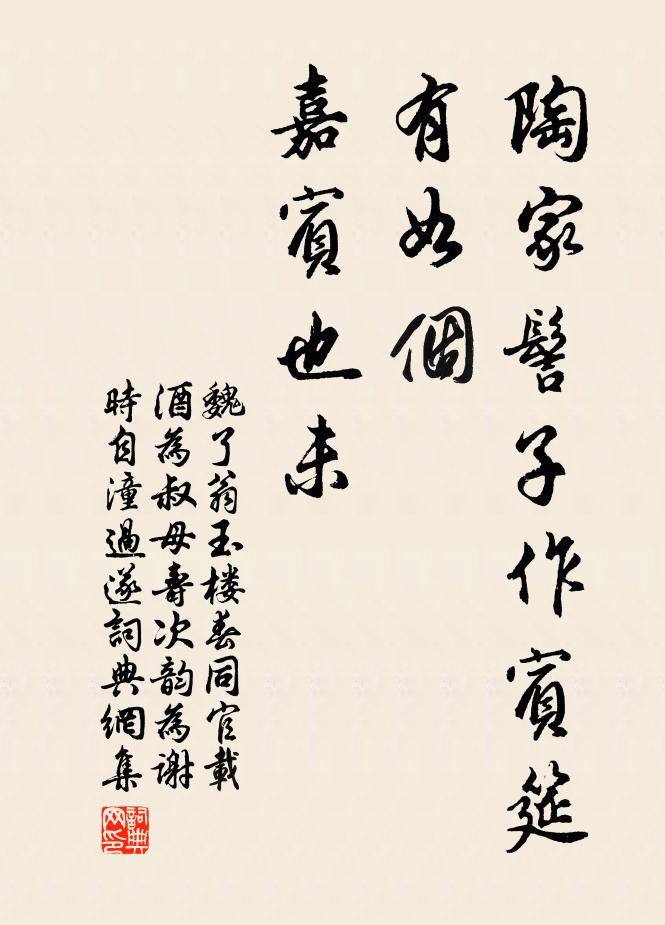 陶家髻子作賓筵
有如個
嘉賓也未
魏了翁玉楼春同官載
酒為叔母壽次韵為謝
時自潼過遂詞典網集
詞典網印